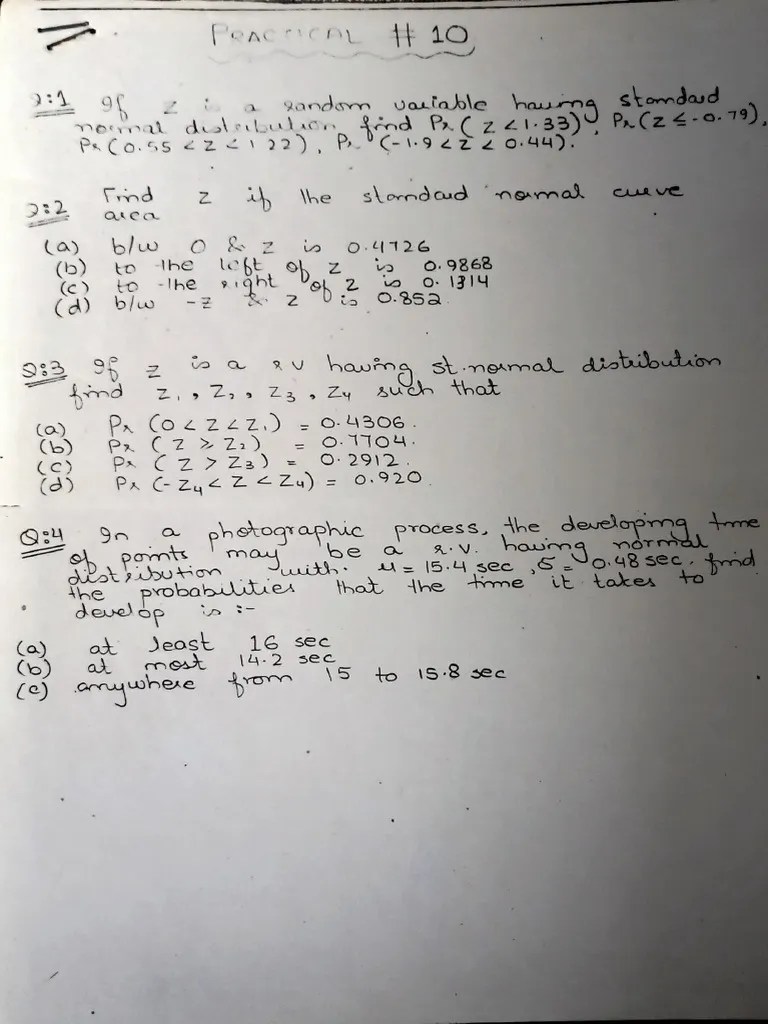 PRACTICAL # 10
Q:1 If z is a random variable having standard
normal distribution find Pr(Z<1.33), Pr(Z≤-0.79),
Pr(0.55<Z<1.22), Pr(-1.9<Z<0.44).
Q:2 Find z if the standard normal curve
area
(a) b/w 0 & z is 0.4726
(b) to the left of z is 0.9868
(c) to the right of z is 0.1314
(d) b/w -z & z is 0.852
Q:3 If z is a r v having st. normal distribution
find z₁, z₂, z₃, z₄ such that
(a) Pr (0<Z<Z₁) = 0.4306.
(b) Pr (Z ≥ Z₂) = 0.7704.
(c) Pr (Z > Z₃) = 0.2912.
(d) Pr (-Z₄<Z<Z₄) = 0.920.
Q:4 In a photographic process, the developing time
of points may be a r.v. having normal
distribution with. μ = 15.4 sec, σ = 0.48 sec. find
the probabilities that the time it takes to
develop is :-
(a) at least 16 sec
(b) at most 14.2 sec
(c) anywhere from 15 to 15.8 sec